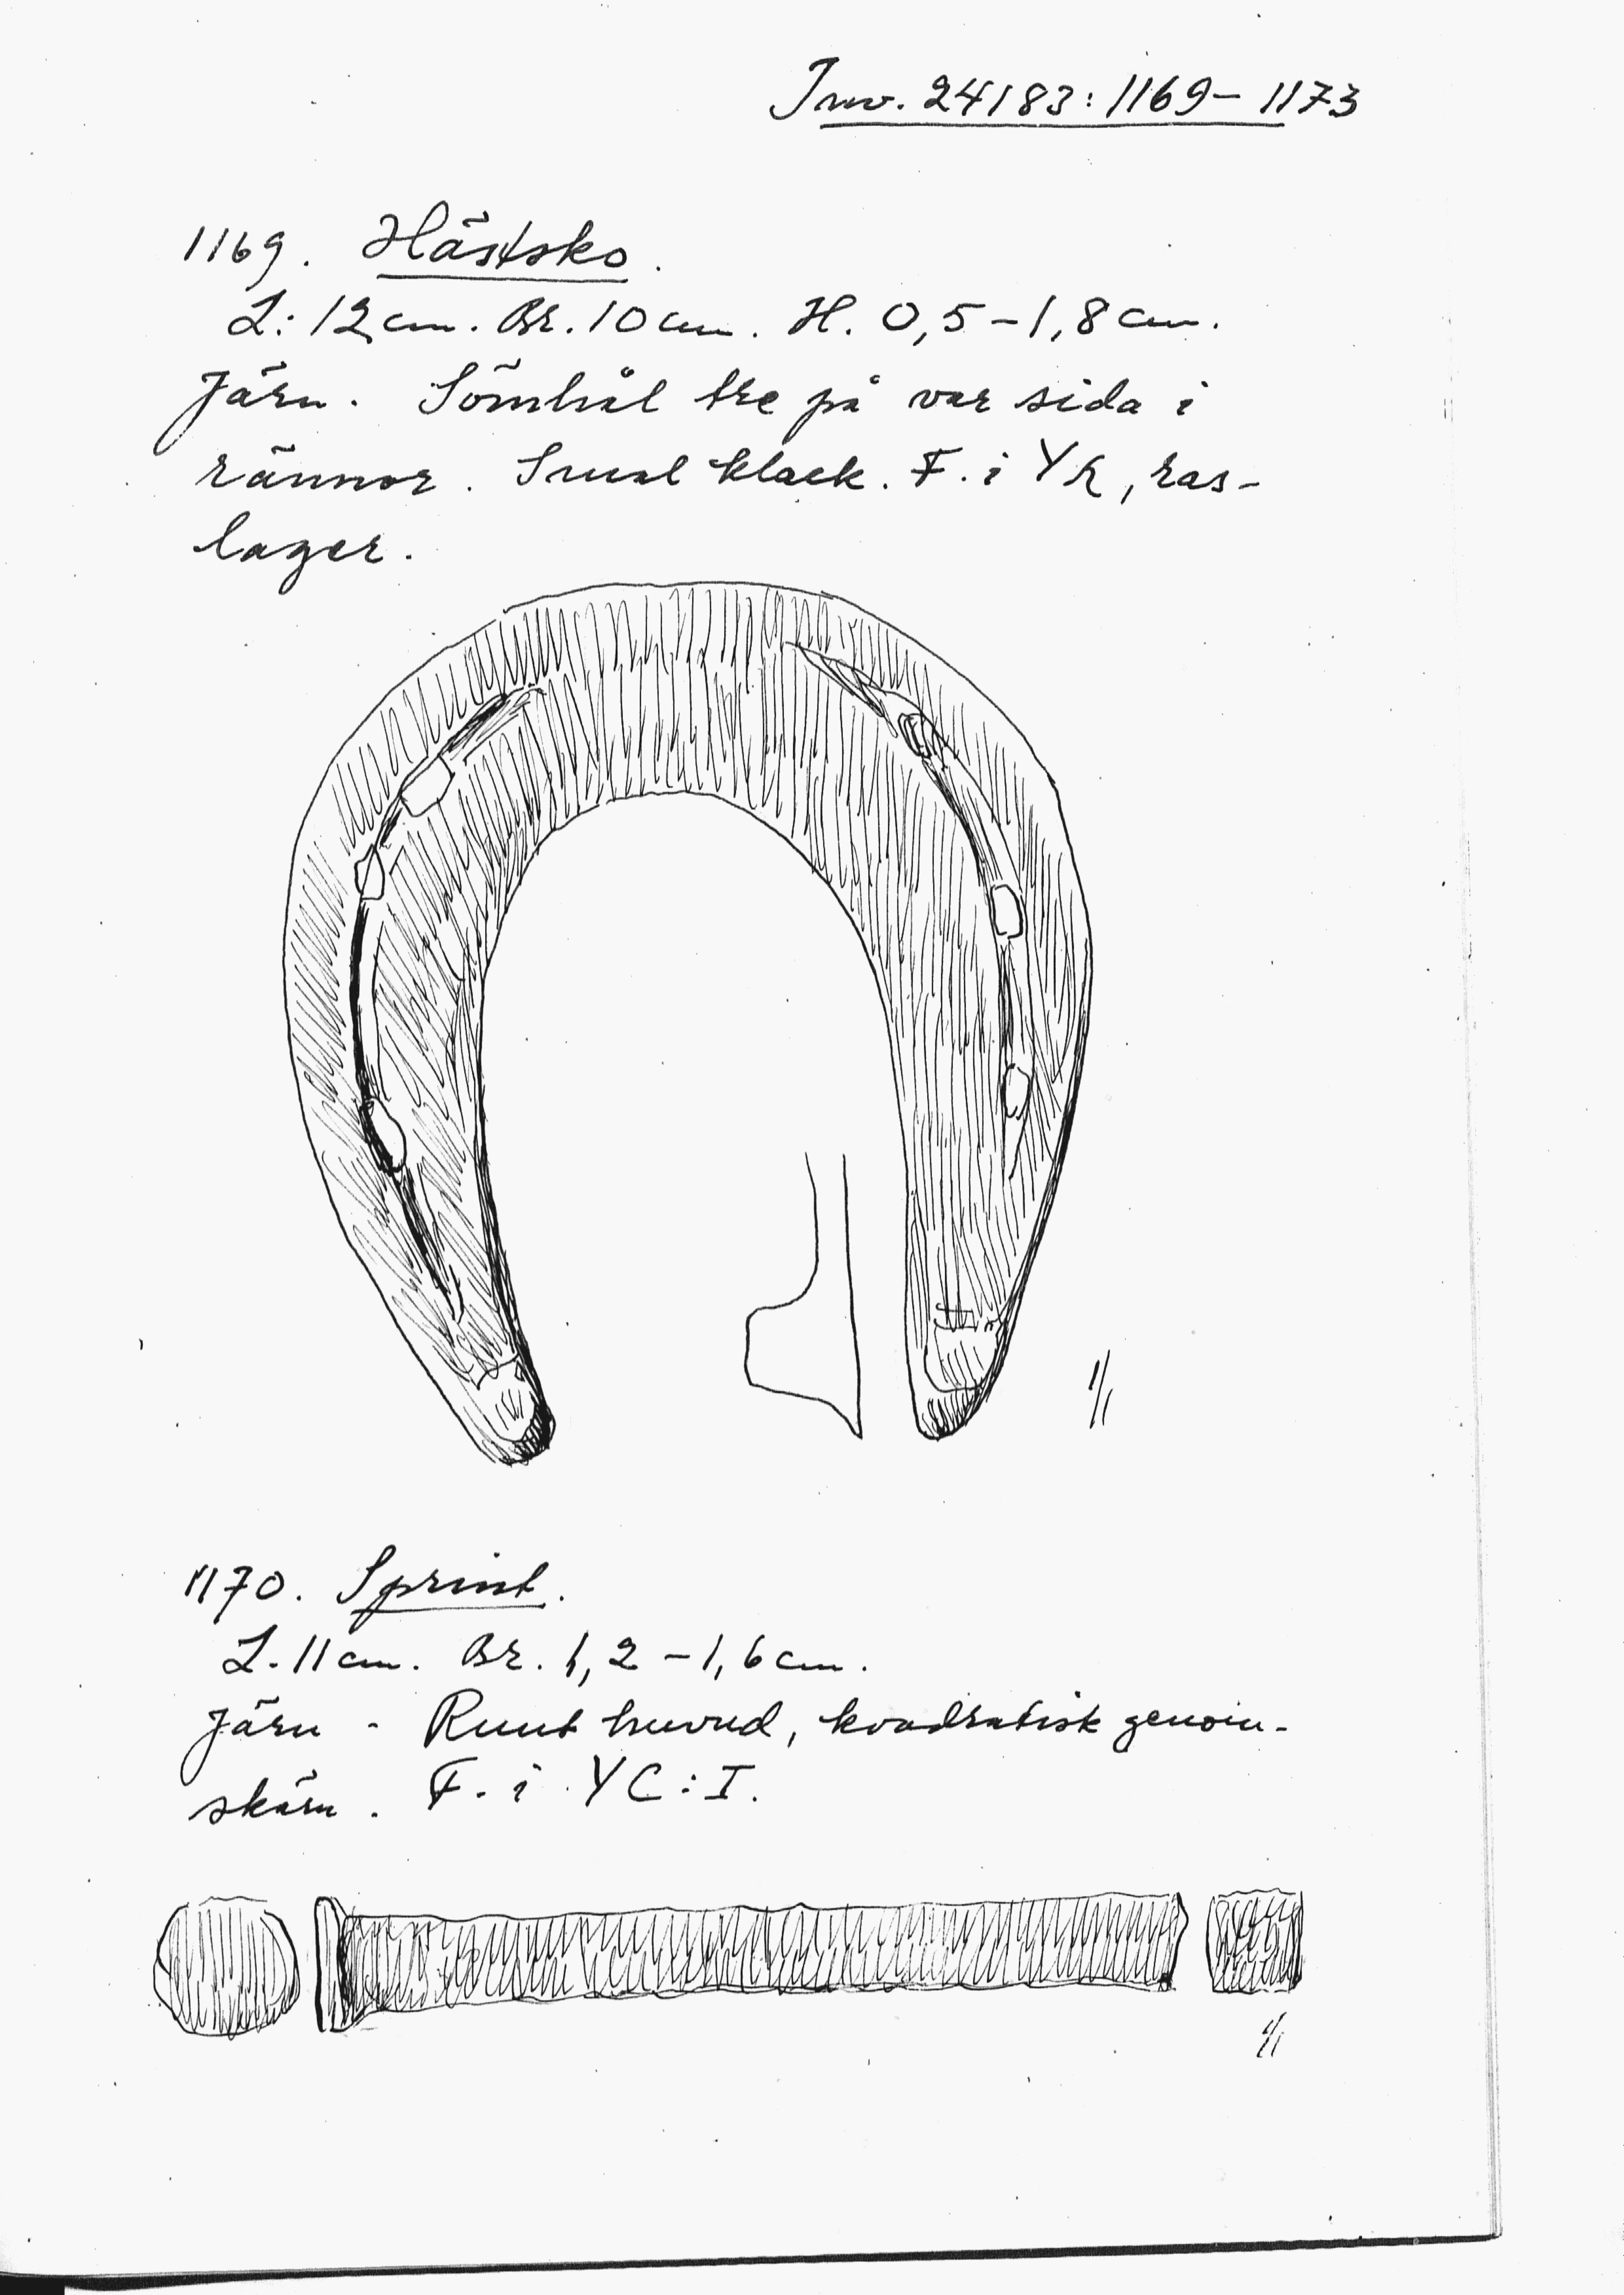 Inv. 24183:1169-1173
1169. Hästsko.
L: 12 cm. Br. 10 cm. H. 0,5-1,8 cm.
Järn. Sömhål tre på var sida i
rännor. Smal klack. F. i YR, ras-
lager.
1/1
1170. Sprint.
L. 11 cm. Br. 1,2-1,6 cm.
Järn. Runt huvud, kvadratisk genom-
skärn. F. i YC:I.
1/1